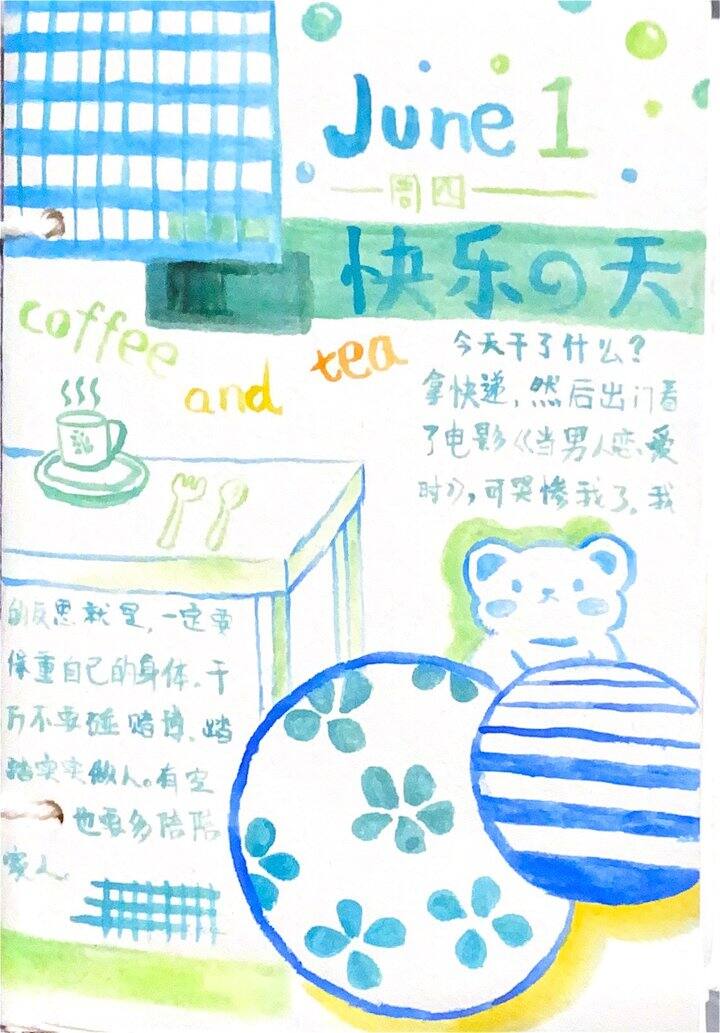 June 1
周四
快乐の天
coffee
and tea
今天干了什么？
拿快递，然后出门看
了电影《当男人恋爱
时》，可哭惨我了，我
的反思就是，一定要
保重自己的身体，千
万不要碰赌博，踏
踏实实做人。有空
也要多陪陪
家人。